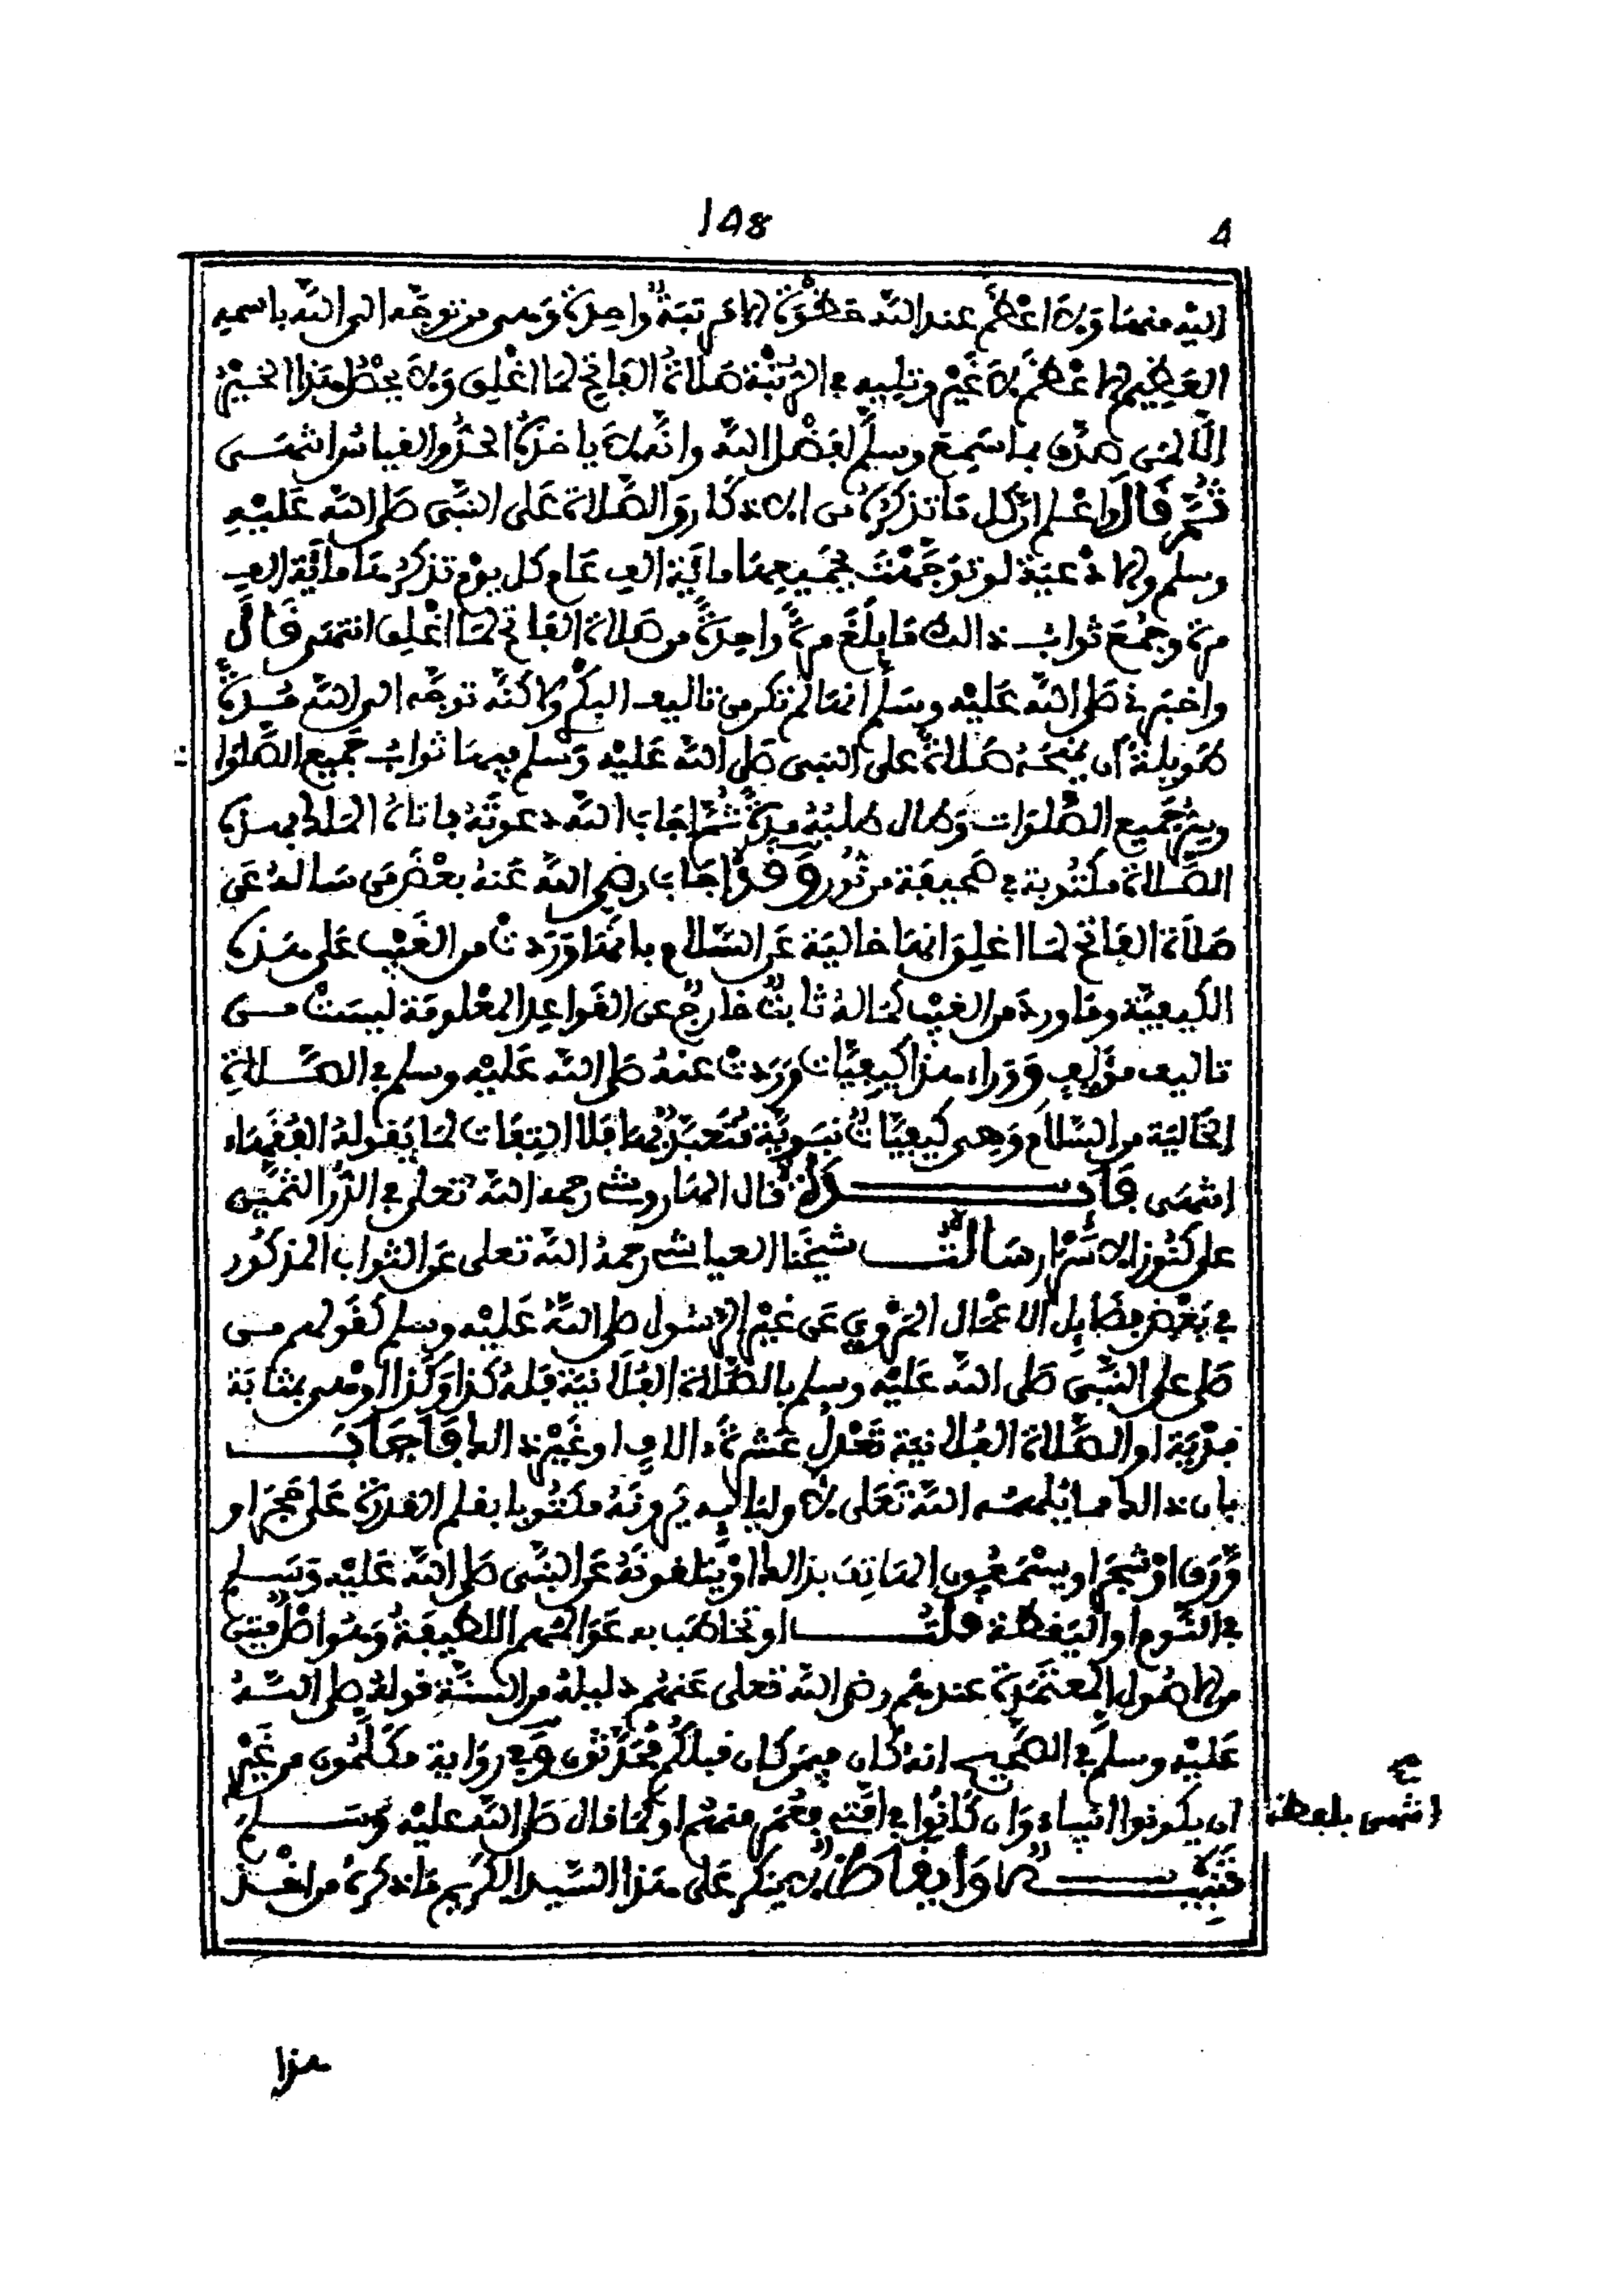 148
4
اليه منها ولا اعظم عند الله حظوة الا مرتبة واحدة وهي من توجه الى الله باسمه
العظيم الاعظم لا غير وتليه في الرتبة صلاة الفاتح لما اغلق ولا يحظ بهذا الخير
الا من صدق بما سمع وسلم لفضل الله وانه لا ياخذه الحد والقياس انتهى
ثم قال واعلم ان كل ما تذكره من الاذكار والصلاة على النبي صلى الله عليه
وسلم والادعية لو توجهت بجميعها ماية الف عام كل يوم تذكرها ماية الف
مرة وجمع ثواب ذالك ما بلغ مرة واحدة من صلاة الفاتح لما اغلق انتهى قال
واخبرني صلى الله عليه وسلم انها لم تكن من تاليف البكري ولاكنه توجه الى الله مدة
طويلة ان يمنحه صلاة على النبي صلى الله عليه وسلم فيها ثواب جميع الصلوات
وسر جميع الصلوات وطال طلبه مدة ثم اجاب الله دعوته فاتاه الملك بهذه
الصلاة مكتوبة في صحيفة من نور وقد اجاب رضي الله عنه بعض من ساله عن
صلاة الفاتح لما اغلق انها خالية عن السلام بانها وردت من الغيب على هذه
الكيفية وما ورد من الغيب كماله ثابت خارج عن القواعد المعلومة ليست من
تاليف مؤلف ووراء هذا كيفيات وردت عنه صلى الله عليه وسلم في الصلاة
الخالية من السلام وهي كيفيات نبوية متعبد بها فلا التفات لما يقوله الفقهاء
انتهى فائدة قال الهاروشي رحمه الله تعلى في الدر الثمين
على كنوز الاسرار سالت شيخنا العياشي رحمه الله تعلى عن الثواب المذكور
في بعض فضايل الاعمال المروي عن غير الرسول صلى الله عليه وسلم كقولهم من
صلى على النبي صلى الله عليه وسلم بالصلاة الفلانية فله كذا وكذا او هي بمثابة
فدية او الصلاة الفلانية تعدل عشرة ءالاف او غير ذالك فاجاب
بان ذالك مما يلهمه الله تعلى لاوليايه يرونه مكتوبا بقلم القدرة على حجر او
ورق او شجر او يسمعون الهاتف بذالك او يتلقونه عن النبي صلى الله عليه وسلم
في النوم او اليقظة قلت او تخاطب به عوالمهم اللطيفة وهو اصل متين
من الاصول المعتمدة عندهم رضي الله تعلى عنهم دليله من السنة قوله صلى الله
عليه وسلم في الصحيح انه كان فيمن كان قبلكم محدثون وفي رواية مكلمون من غير
ان يكونوا انبياء وان كانوا في امتي فعمر منهم او كما قال صلى الله عليه وسلم
صح
انتهى بلفظه
تنبيه وايقاظ لا ينكر على هذا السيد الكريم ما ذكره من اخذ
هذا